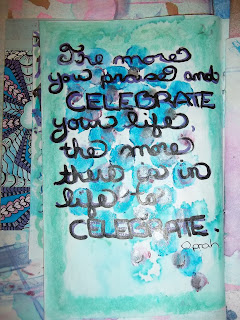 The more
you praise and
CELEBRATE
your life
the more
there is in
life to
CELEBRATE.
Oprah